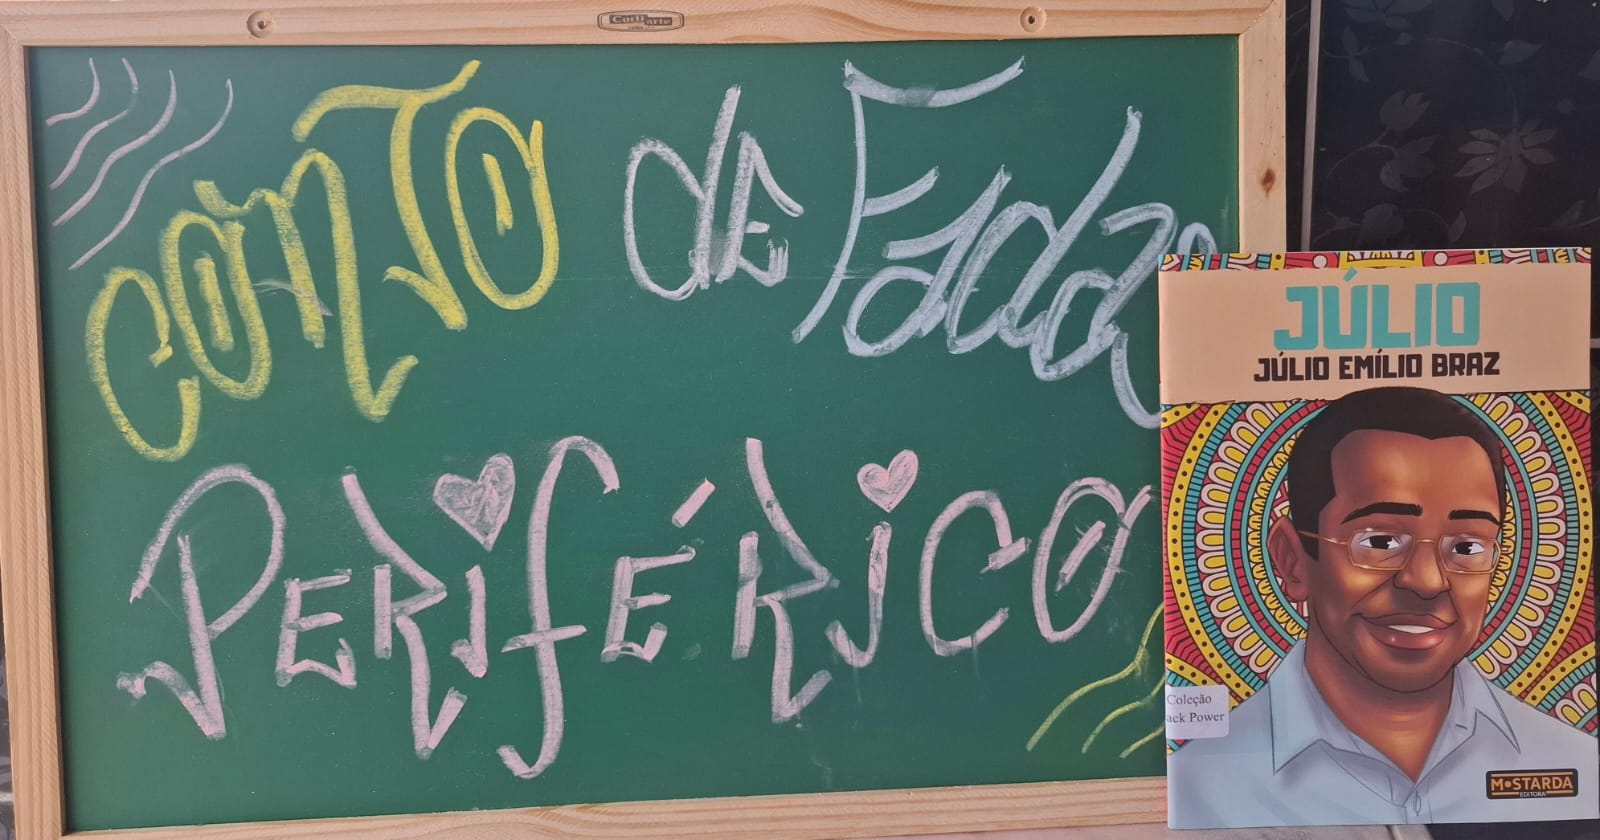 Corti arte
CONTO de Fadas
PERIFÉRICO
JÚLIO
JÚLIO EMÍLIO BRAZ
Coleção
ack Power
MOSTARDA
EDITORA